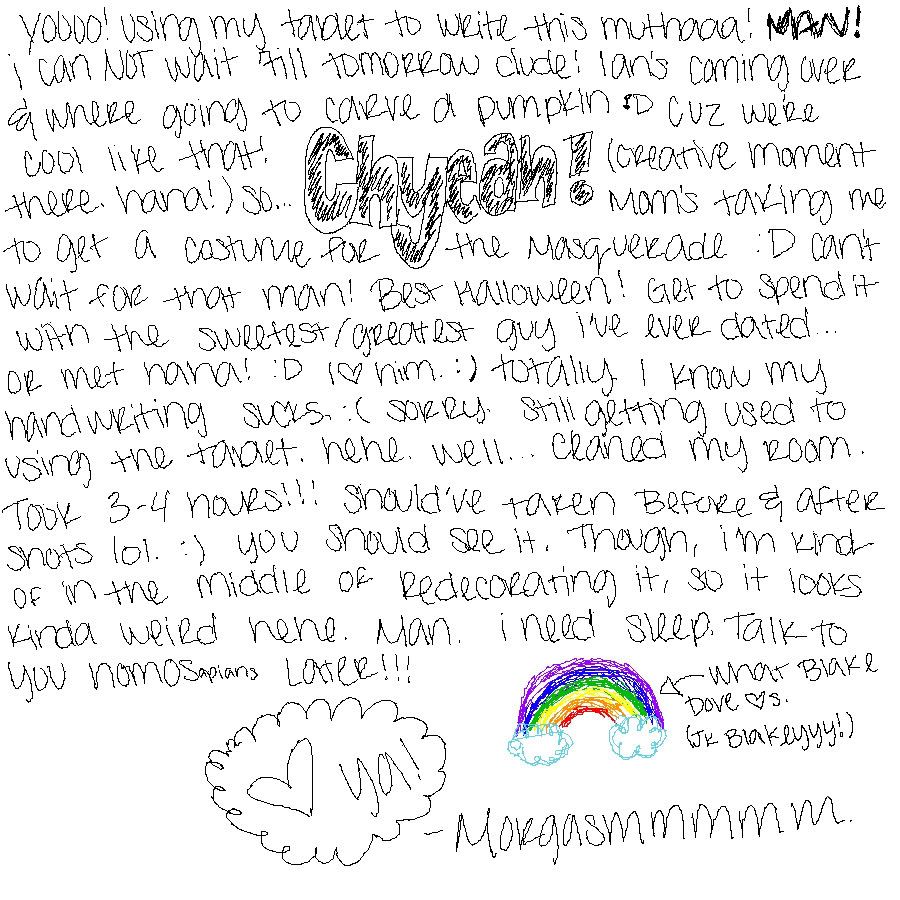 YOOOO! using my tablet to write this muthaaa! MAN!
i can NOT wait 'till tomorrow dude! Ian's coming over
& where going to carve a pumpkin :D CUZ we're
cool like that! Chyeah! (creative moment
there. haha!) so... Mom's taking me
to get a costume for the Masquerade :D can't
wait for that man! Best Halloween! Get to spend it
with the sweetest/greatest guy i've ever dated...
or met haha! :D I ♡ him. :) totally. I know my
handwriting sucks. :( sorry. Still getting used to
using the tablet. hehe. well... cleaned my room.
Took 3-4 hours!!! Should've taken Before & after
shots lol. :) you should see it. Though, i'm kind-
of in the middle of Redecorating it, so it looks
kinda weird hehe. Man. i need sleep. Talk to
you homosapians Later!!!
← What Blake
Dove ♡s.
(Jk Blakeyyy!)
♡ ya!
- Morgasmmmmmm.